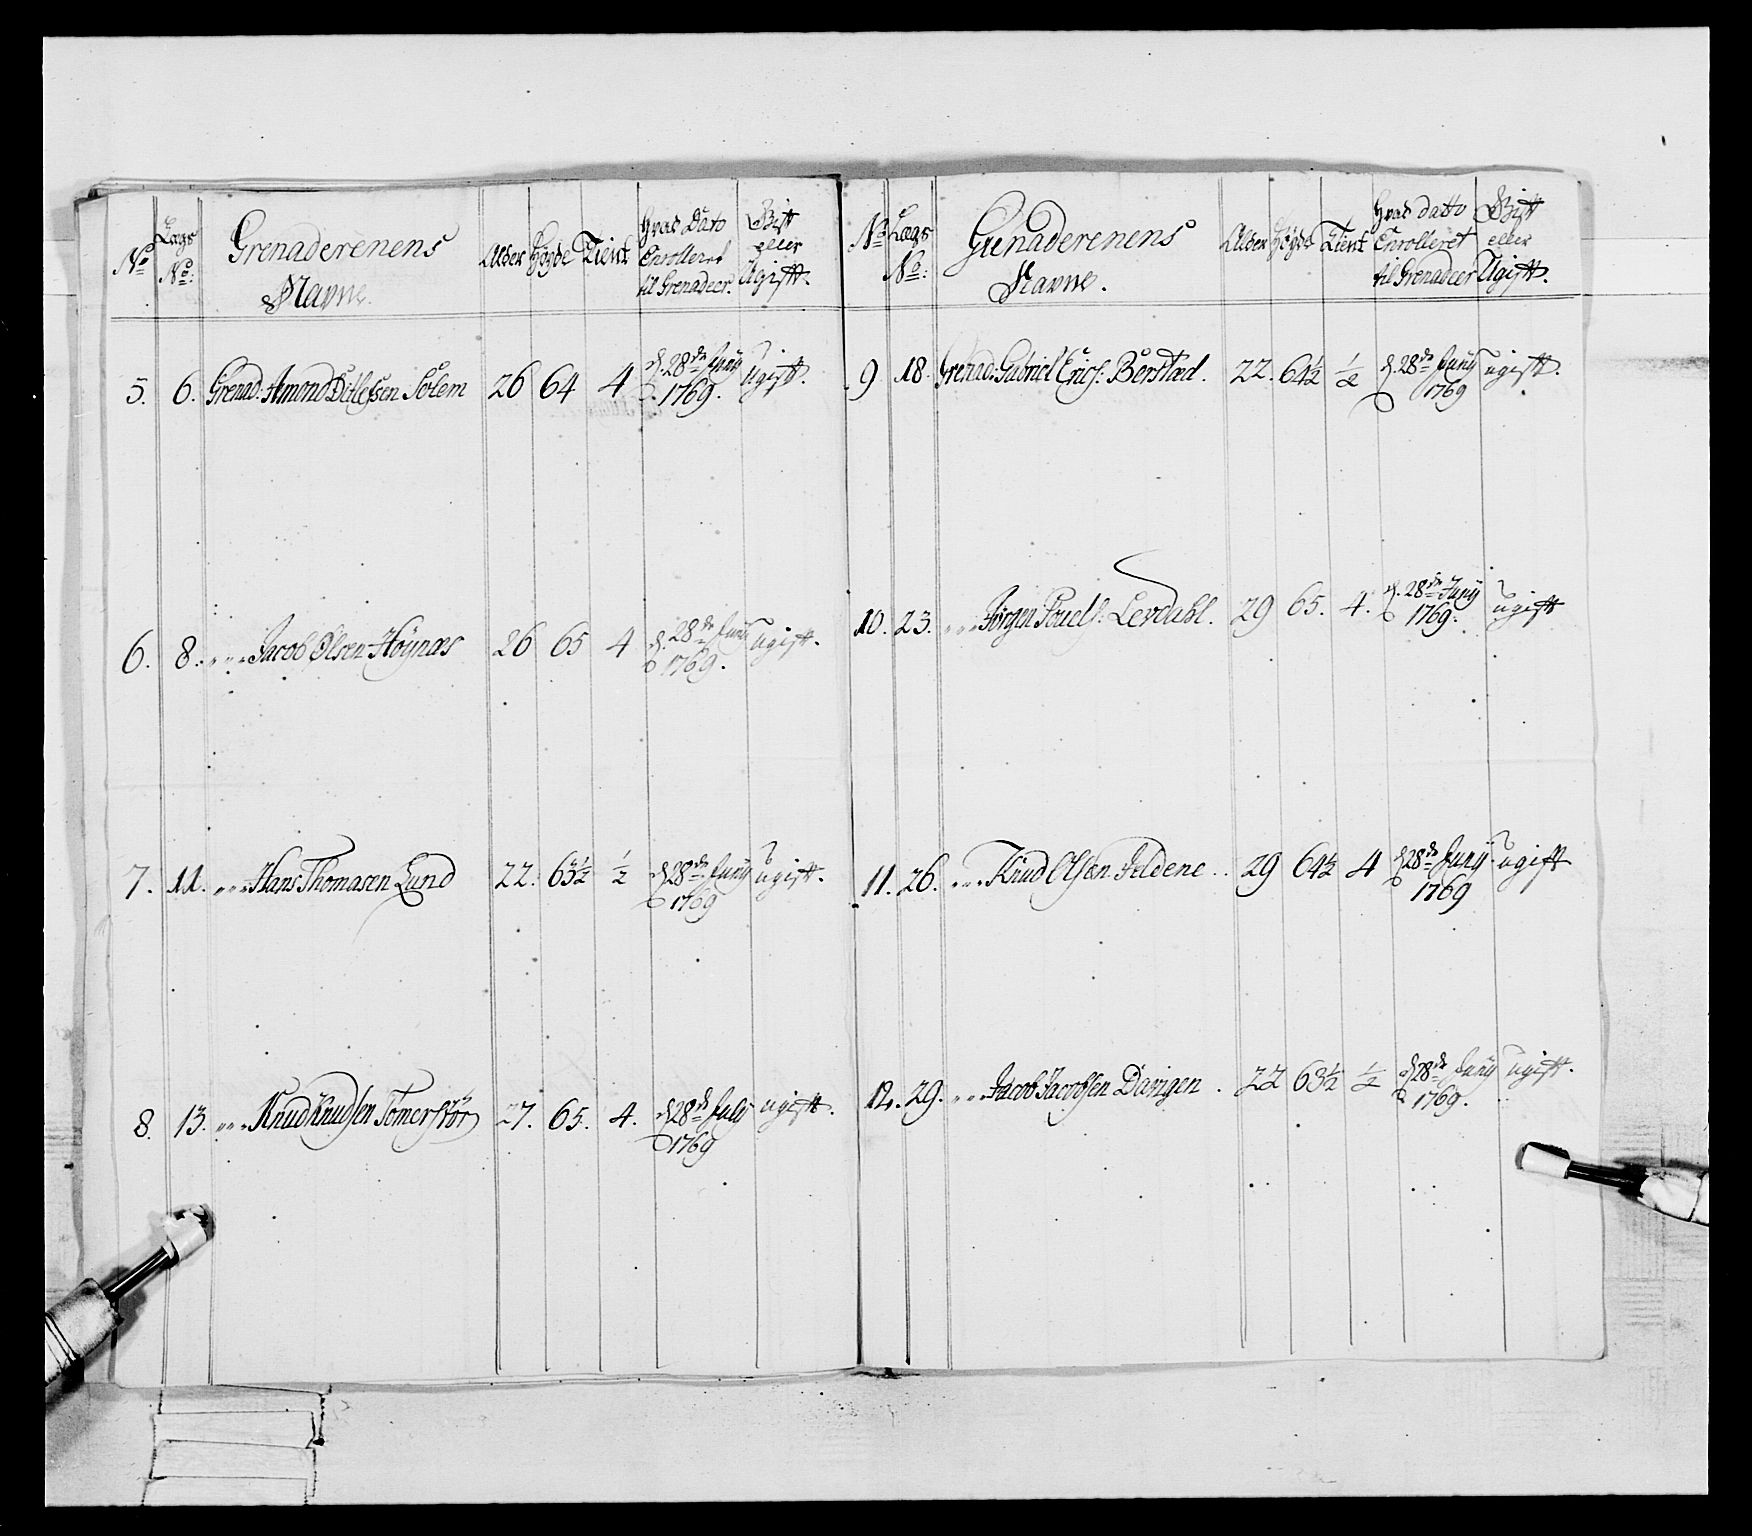 No Lægs No: Grenaderenens Navne. Alder Høyde Tient Hvad Dato Enrolleret til Grenadeer. Gift eller Ugift.
5. 6. Grenad: Amond Ditlefsen Solem 26 64 4 d. 28de Juny 1769. Ugift.
6. 8. " " " Jacob Olsen Høynæs 26 65 4 d. 28de Juny 1769. ugift.
7. 11. " " " Hans Thomasen Lund 22. 63½ ½ d. 28de Juny 1769 ugift.
8. 13. " " " Knud Knudsen 27. 65. 4. d. 28de July 1769 ugift.
No Lægs No: Grenaderenens Navne. Alder Høyde Tient Hvad datto Enrolleret til Grenadeer Gift eller Ugift.
9 18. Grenad: Gabriel Erics: Berstad. 22. 64½ ½ d. 28de Juny 1769 ugift.
10. 23. " " " Jørgen Pouels: Levdahl. 29 65. 4. d. 28de Juny 1769. ugift
11. 26. " " " Knud Olsen Feldene . . 29 64½ 4 d. 28de Juny 1769 ugift
12. 29. " " " Jacob Jacobsen Davigen . 22 63½ ½ d. 28de Juny 1769. ugift.